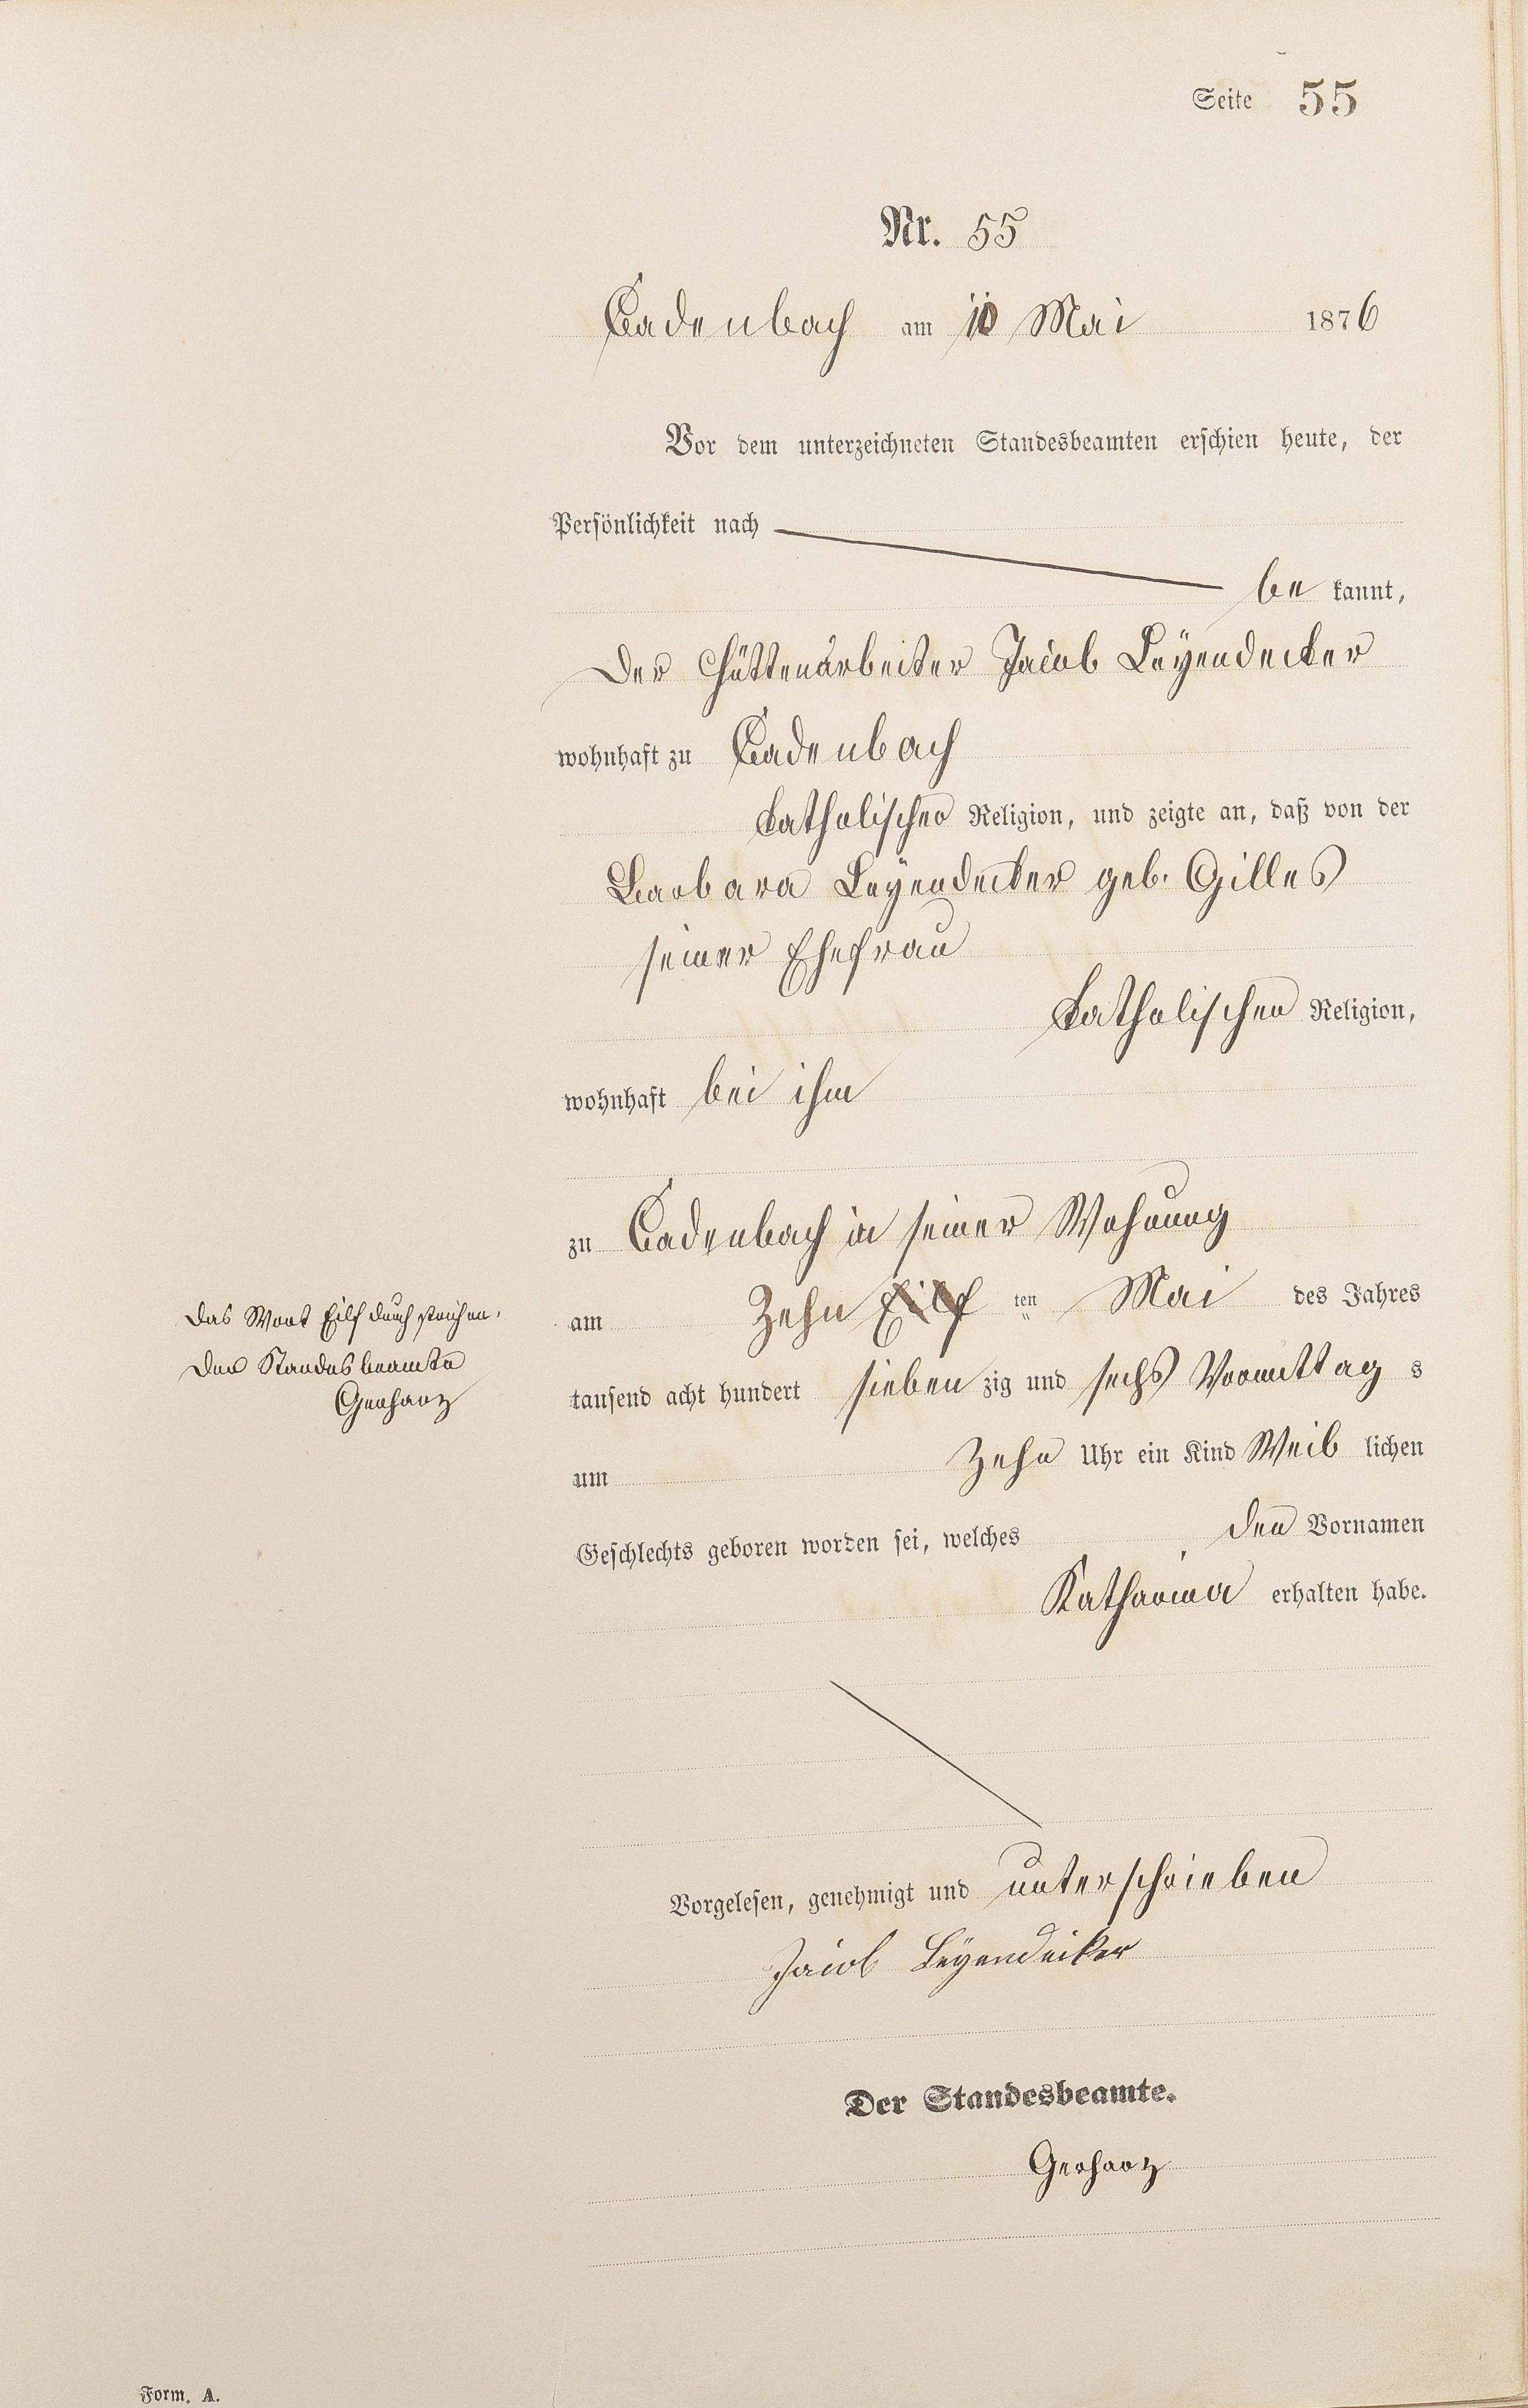 Seite 55
Nr. 55
Cadenbach am 10 Mai 1876
Vor dem unterzeichneten Standesbeamten erschien heute, der
Persönlichkeit nach
be kannt,
Der Hüttenarbeiter Jacob Leyendecker
wohnhaft zu Cadenbach
katholischer Religion, und zeigte an, daß von der
Barbara Leyendecker geb. Gilles
seiner Ehefrau
katholischer Religion,
wohnhaft bei ihm
zu Cadenbach in seiner Wohnung
am Zehn Eilf ten Mai des Jahres
tausend acht hundert sieben zig und sechs Vormittag s
um Zehn Uhr ein Kind Weib lichen
Geschlechts geboren worden sei, welches den Vornamen
Katharina erhalten habe.
Das Wort Eilf durchstrichen.
Der Standesbeamte
Gerharz
Vorgelesen, genehmigt und unterschrieben
Jacob Leyendecker
Der Standesbeamte.
Gerharz
Form. A.